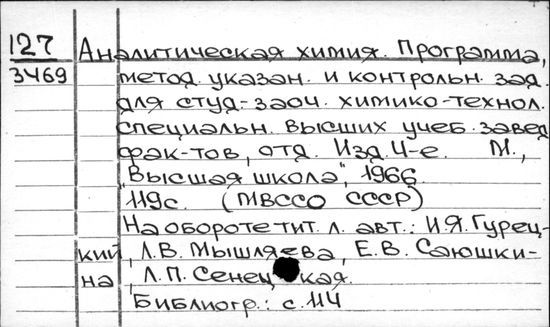 127 Аналитическая химия. Программа,
3469 метод. указан. и контрольн. зад.
для студ-заоч. химико-технол.
специальн. высших учеб. завед.
фак-тов, отд. Изд. 4-е. М.,
"Высшая школа", 1966.
119с. (МВССО СССР)
На обороте тит. л. авт.: И.Я.Гурец-
кий, Л.В. Мышляева, Е.В. Саюшки-
на, Л.П. Сенец кая.
Библиогр.: с. 114